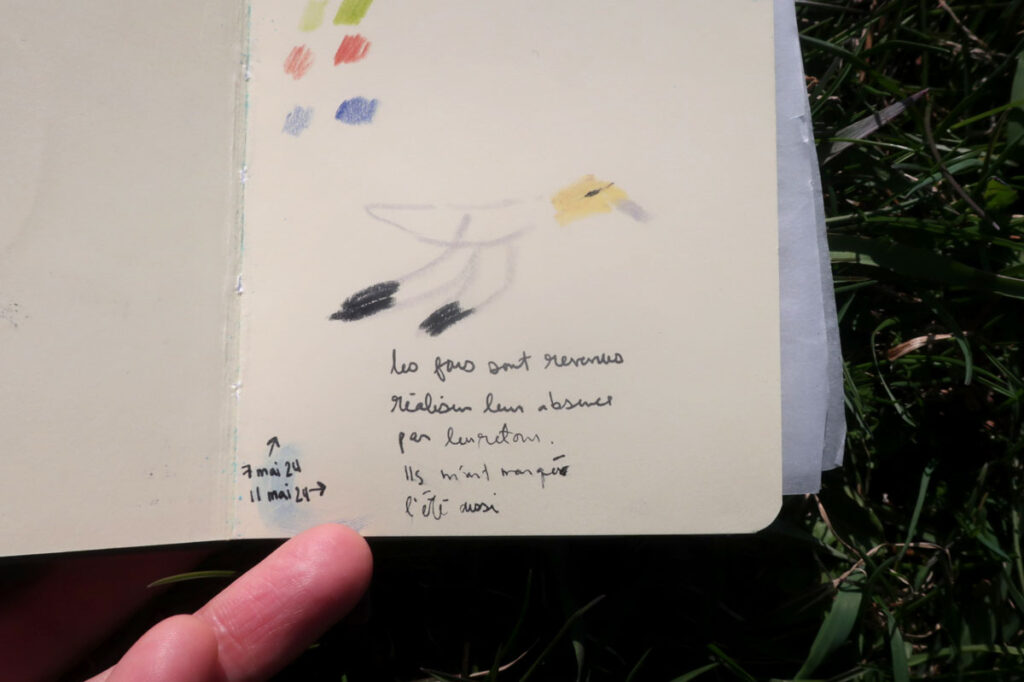 les fous sont revenus
réaliser leur absence
par leur retour.
Ils m'ont manqué
l'été aussi
7 mai 24
11 mai 24 →